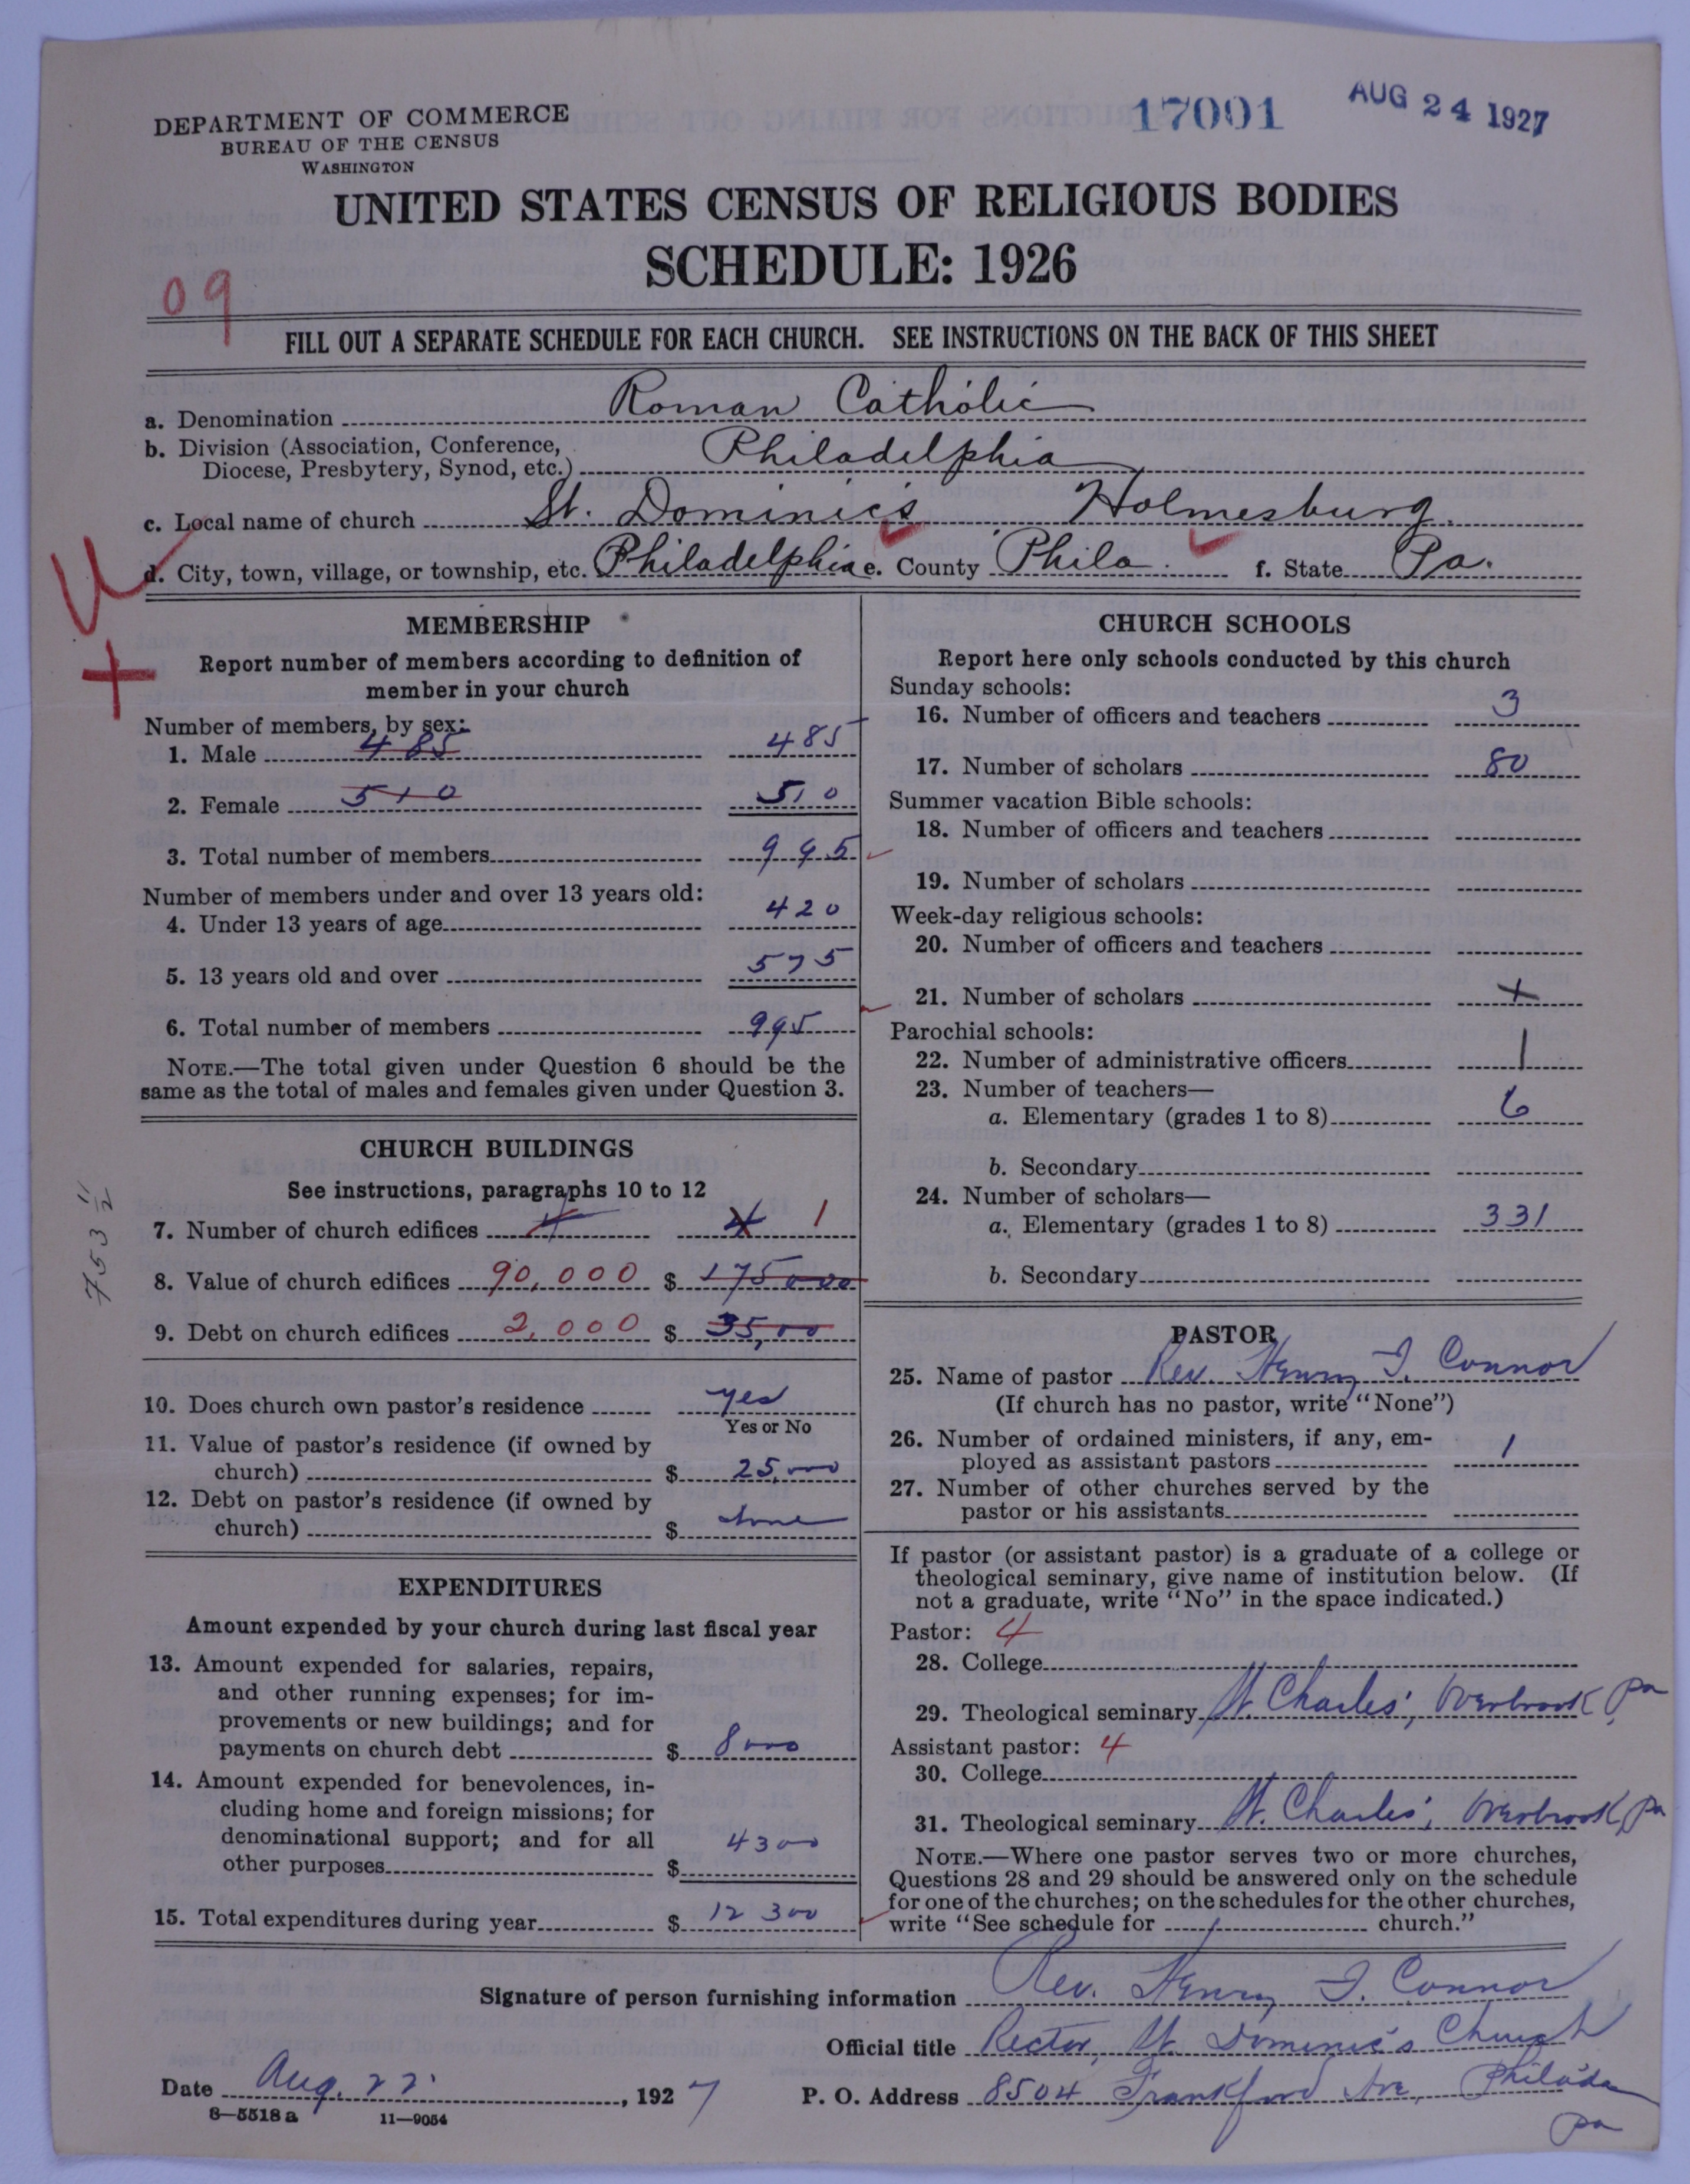 17091
AUG 24 1927
DEPARTMENT OF COMMERCE
BUREAU OF THE CENSUS
WASHINGTON
UNITED STATES CENSUS OF RELIGIOUS BODIES
SCHEDULE: 1926
09
FILL OUT A SEPARATE SCHEDULE FOR EACH CHURCH. SEE INSTRUCTIONS ON THE BACK OF THIS SHEET
a. Denomination Roman Catholic
b. Division (Association, Conference, Diocese, Presbytery, Synod, etc.) Philadelphia
c. Local name of church St. Dominic's Holmesburg.
d. City, town, village, or township, etc. Philadelphia e. County Phila. f. State Pa.
MEMBERSHIP
Report number of members according to definition of
member in your church
Number of members, by sex:
1. Male 485 485
2. Female 510 510
3. Total number of members 995
Number of members under and over 13 years old:
4. Under 13 years of age 420
5. 13 years old and over 575
6. Total number of members 995
NOTE.—The total given under Question 6 should be the
same as the total of males and females given under Question 3.
CHURCH BUILDINGS
See instructions, paragraphs 10 to 12
7. Number of church edifices 4 4 1
8. Value of church edifices 90,000 $ 175000
9. Debt on church edifices 2,000 $ 35,00
753 11/2
10. Does church own pastor's residence yes
Yes or No
11. Value of pastor's residence (if owned by
church) $ 25,000
12. Debt on pastor's residence (if owned by
church) $ none
EXPENDITURES
Amount expended by your church during last fiscal year
13. Amount expended for salaries, repairs,
and other running expenses; for im-
provements or new buildings; and for
payments on church debt $ 8000
14. Amount expended for benevolences, in-
cluding home and foreign missions; for
denominational support; and for all
other purposes $ 4300
15. Total expenditures during year $ 12300
CHURCH SCHOOLS
Report here only schools conducted by this church
Sunday schools:
16. Number of officers and teachers 3
17. Number of scholars 80
Summer vacation Bible schools:
18. Number of officers and teachers
19. Number of scholars
Week-day religious schools:
20. Number of officers and teachers
21. Number of scholars +
Parochial schools:
22. Number of administrative officers 1
23. Number of teachers—
a. Elementary (grades 1 to 8) 6
b. Secondary
24. Number of scholars—
a. Elementary (grades 1 to 8) 331
b. Secondary
PASTOR
25. Name of pastor Rev. Henry I. Connor
(If church has no pastor, write "None")
26. Number of ordained ministers, if any, em-
ployed as assistant pastors 1
27. Number of other churches served by the
pastor or his assistants
If pastor (or assistant pastor) is a graduate of a college or
theological seminary, give name of institution below. (If
not a graduate, write "No" in the space indicated.)
Pastor: 4
28. College
29. Theological seminary St. Charles', Overbrook Pa
Assistant pastor: 4
30. College
31. Theological seminary St. Charles', Overbrook, Pa
NOTE.—Where one pastor serves two or more churches,
Questions 28 and 29 should be answered only on the schedule
for one of the churches; on the schedules for the other churches,
write "See schedule for church."
Signature of person furnishing information Rev. Henry I. Connor
Official title Rector, St. Dominic's Church
Date Aug. 22, 1927 P. O. Address 8504 Frankford Ave, Philada
Pa
8—5518a 11—9054